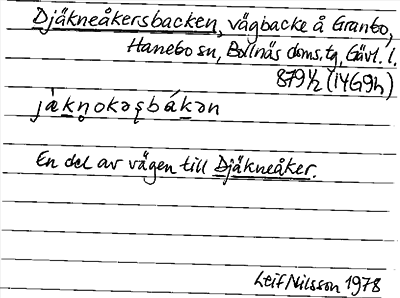 Djäkneåkersbacken, vägbacke å Granbo,
Hanebo sn, Bollnäs doms.tg, Gävl. l.
879½ (14G9h)
jàkn̥okəʂbákən
En del av vägen till Djäkneåker.
Leif Nilsson 1978